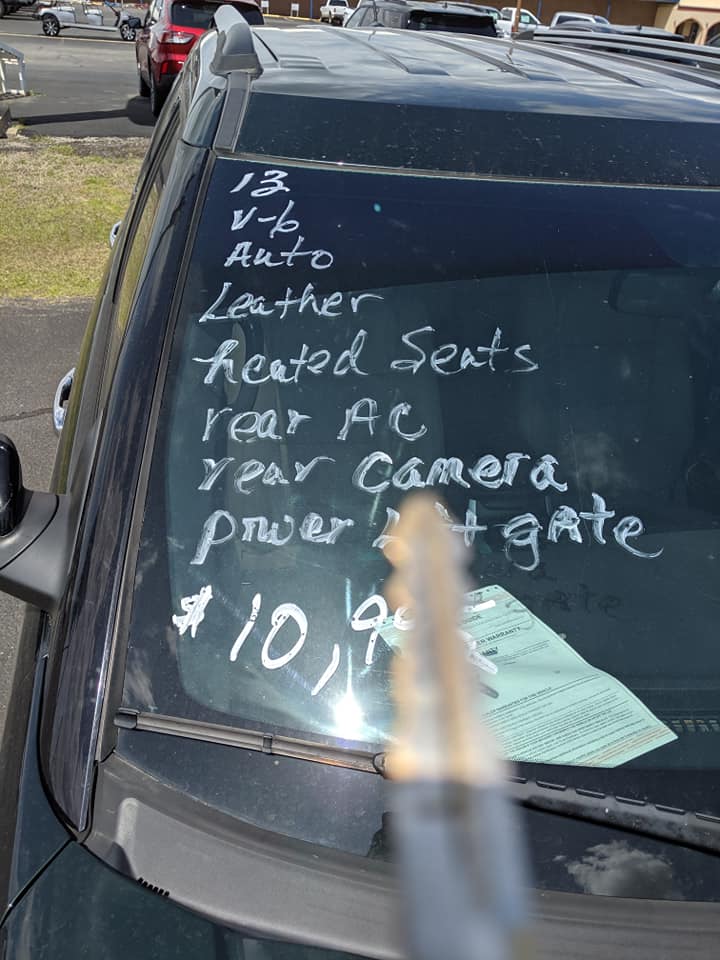 13
V-6
Auto
Leather
heated Seats
rear AC
rear Camera
power gAte
$ 10,9
WARRANTY